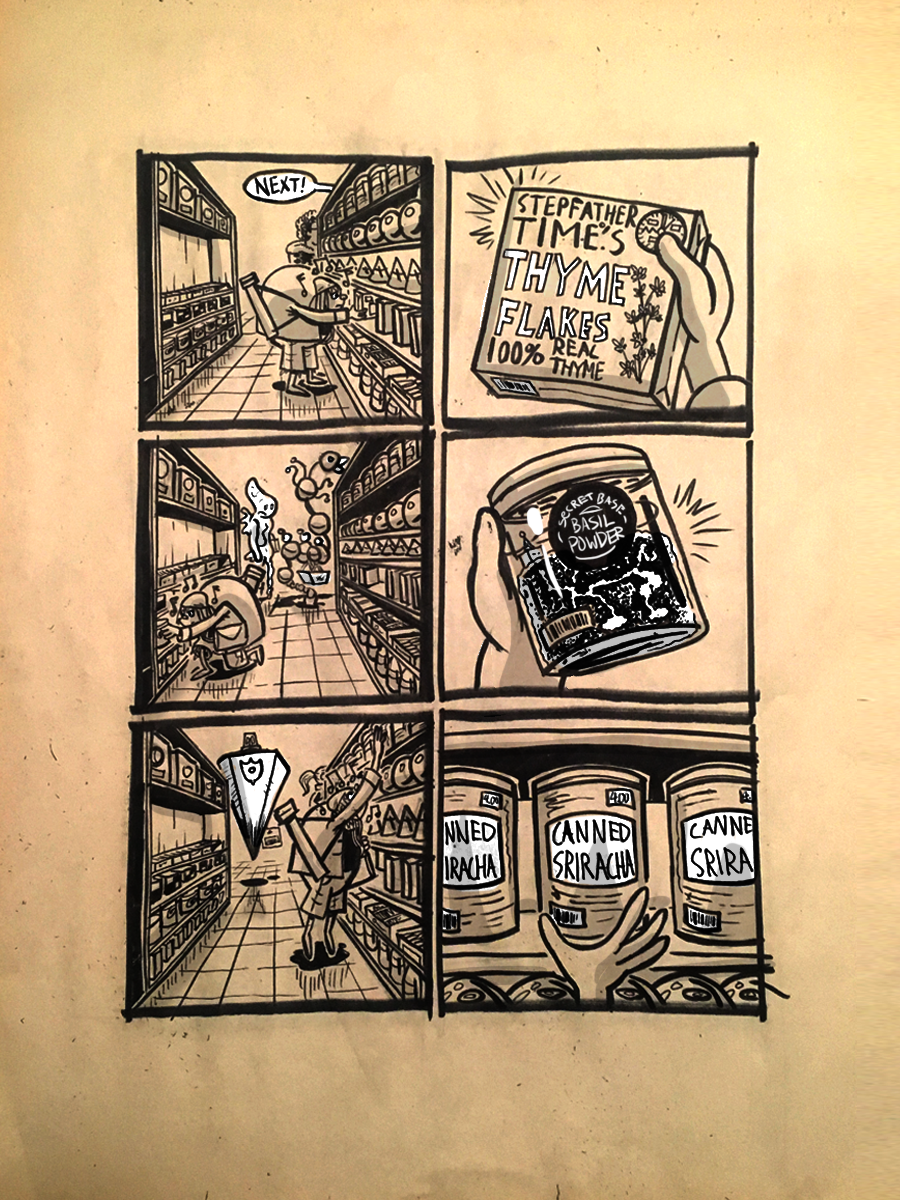 NEXT!
STEPFATHER
TIME'S
THYME
FLAKES
100% REAL
THYME
SECRET BASIL
BASIL
POWDER
4.00
NNED
IRACHA
CANNED
SRIRACHA
CANNE
SRIRA